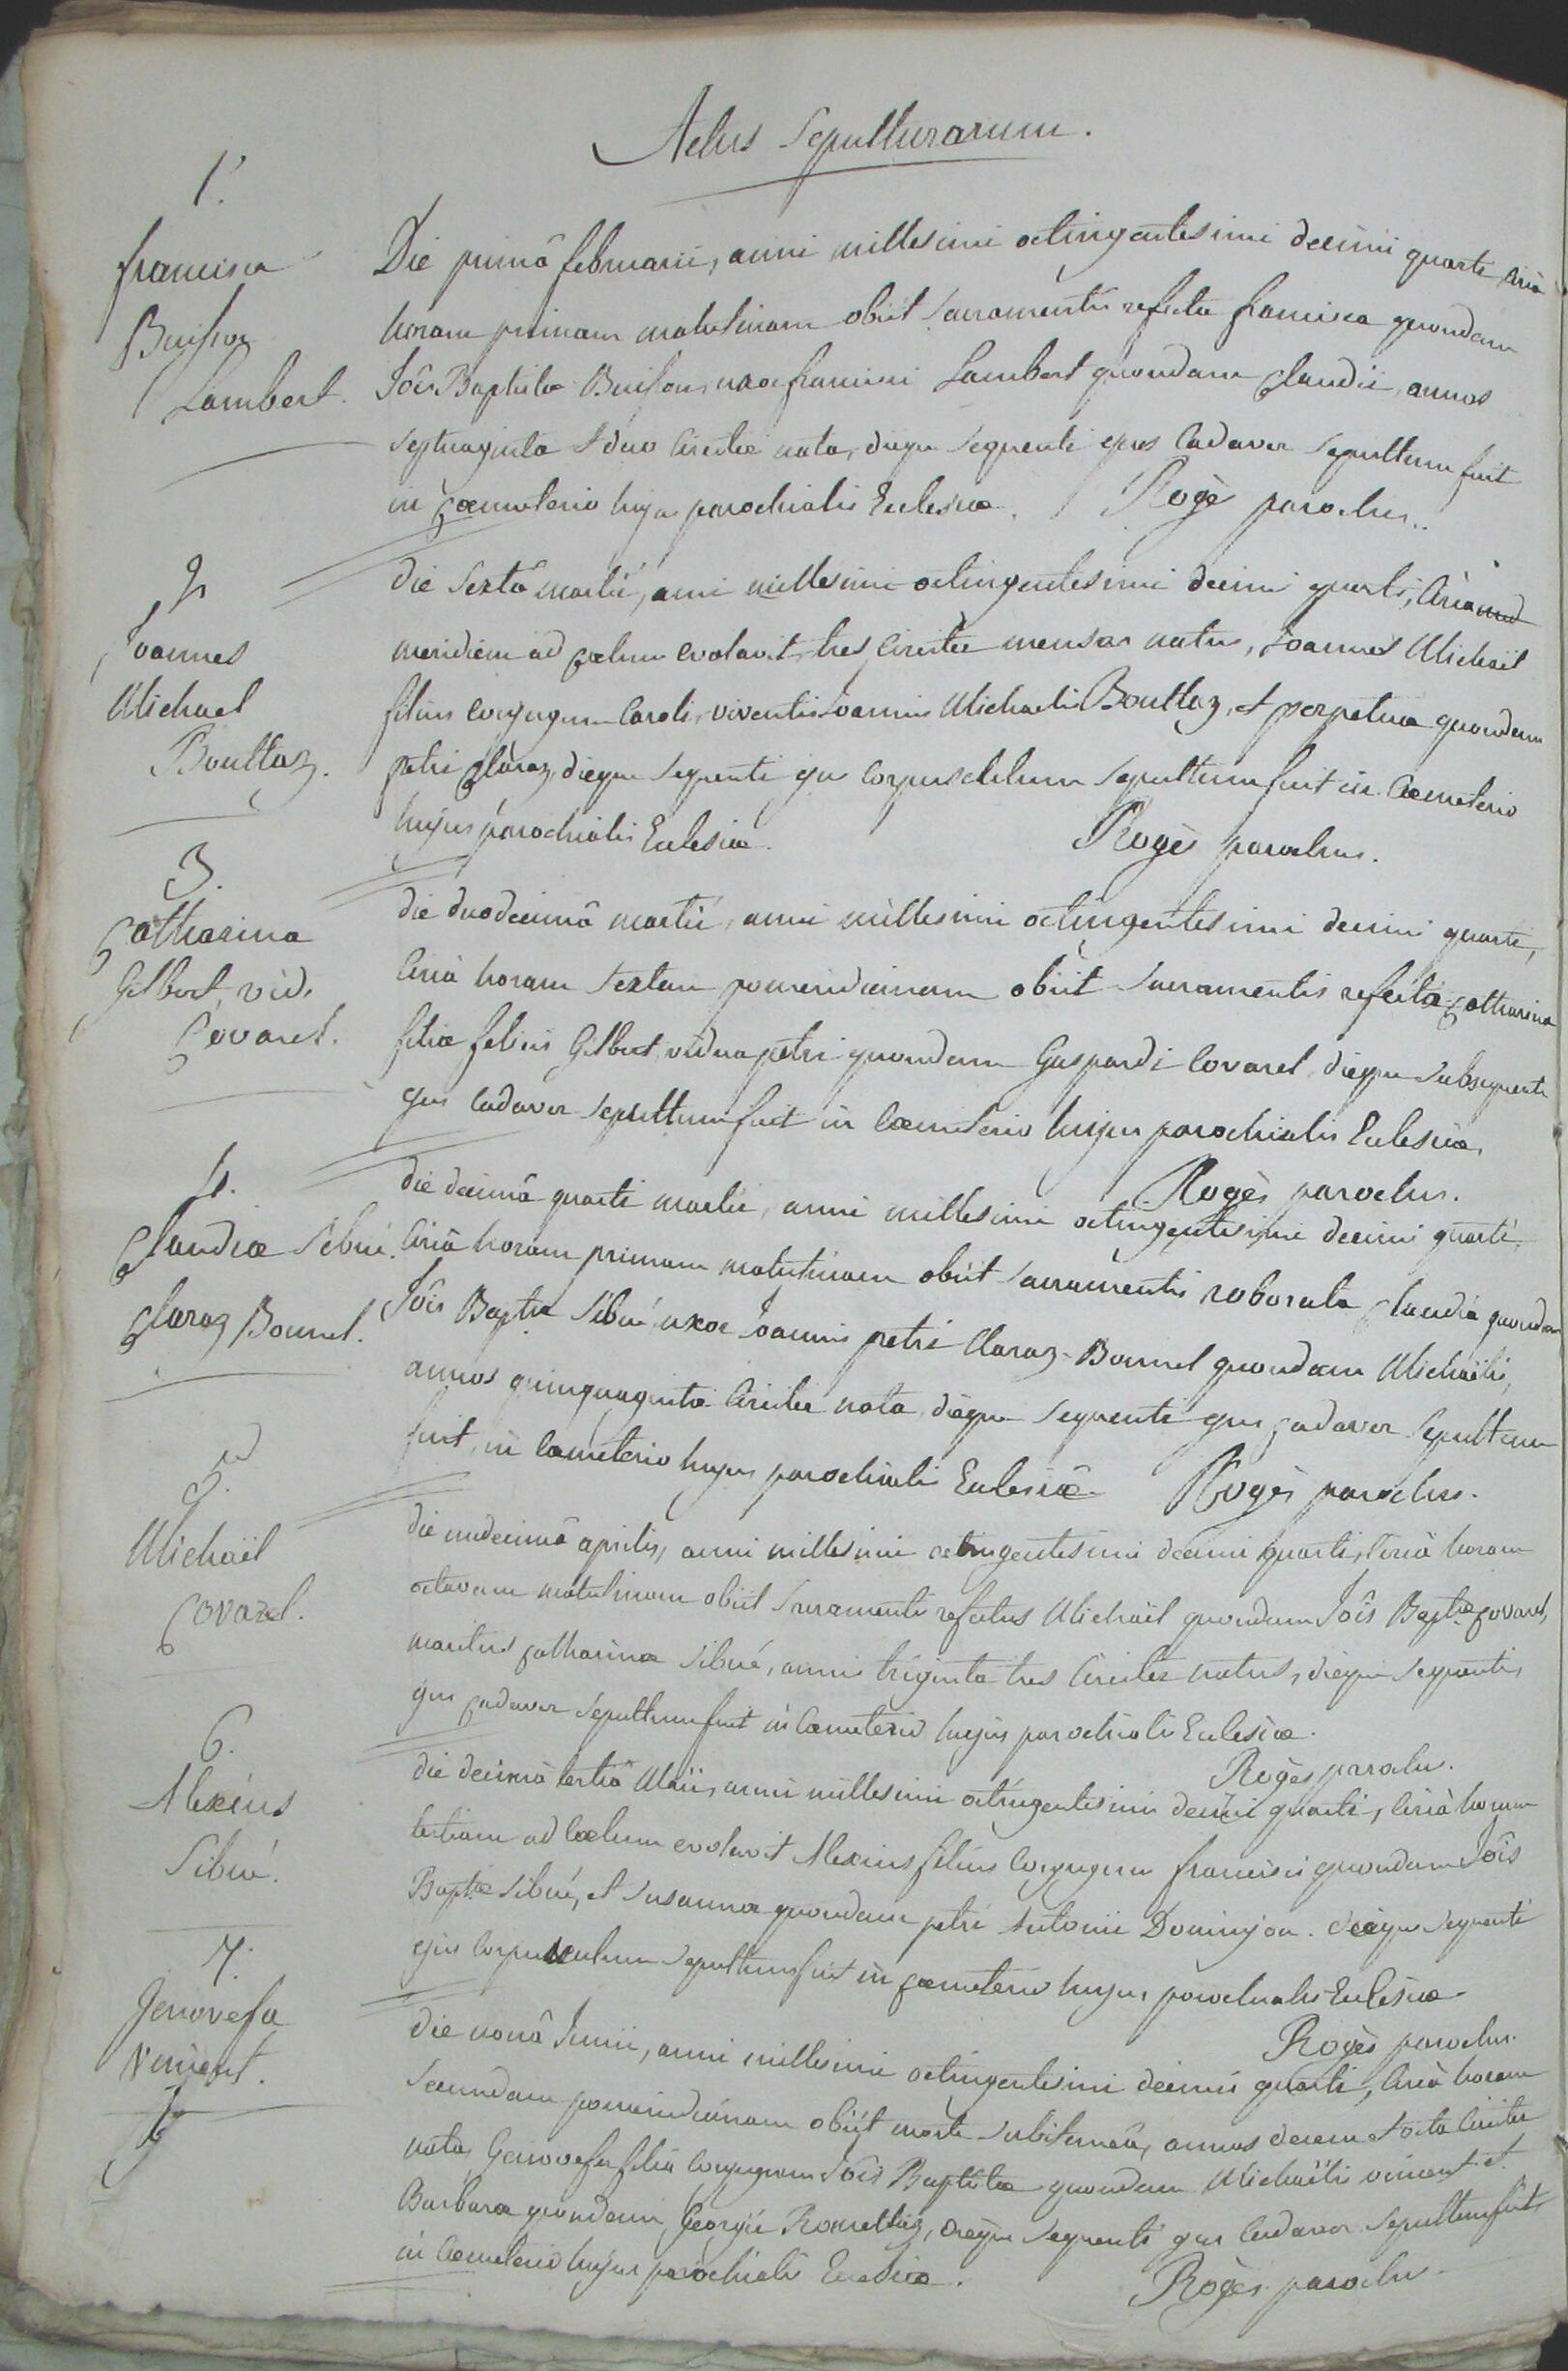 Actus Sepulturarum.
1.
francisca
Buisson
Lambert.
Die primâ februarii, anni millesimi octingentesimi decimi quarti circà
horam primam matutinam obiit Sacramentis refecta francisca quondam
Jôis Baptistæ Buisson, uxor francisci Lambert quondam Claudii, annos
septuaginta & duo Circiter nata, dieque sequenti ejus Cadaver sepultum fuit
in Cœmeterio hujus parochialis Ecclesiæ. Rogès parochus.
2
Joannes
Michael
Bouttaz.
die Sextâ martii, anni millesimi octingentesimi decimi quarti, Circà
meridiem ad Cælum evolavit, tres Circiter menses natus, Joannes Michaël
filius Conjugum Caroli, viventis Joannis Michaelis Bouttaz, et perpetuæ quondam
petri Claraz, dieque sequenti ejus Corpusculum sepultum fuit in Cœmeterio
hujus parochialis Ecclesiæ. Rogès parochus.
3.
Catharina
Gilbert, vid.
Covarel.
die duodecimâ martii, anni millesimi octingentesimi decimi quarti,
Circà horam Sextam pomeridianam obiit Sacramentis refecta Catharina
filia felicis Gilbert, vidua petri quondam Gaspardi Covarel, dieque subsequenti
ejus Cadaver sepultum fuit in Cœmeterio hujus parochialis Ecclesiæ.
Rogès parochus.
4.
Claudia Sibué.
Claraz Bonnel.
die decimâ quarti martii, anni millesimi octingentesimi decimi quarti,
Circà horam primam matutinam obiit Sacramentis roborata Claudia quondam
Jôis Baptæ Sibué uxor Joannis petri Claraz-Bonnel quondam Michaëlis,
annos quinquaginta Circiter nata, dieque sequenti ejus Cadaver Sepultum
fuit, in Cœmeterio hujus parochialis Ecclesiæ Rogès parochus.
5.
Michaël
Covarel.
die undecimâ aprilis, anni millesimi octingentesimi decimi quarti, Circà horam
octavam matutinam obiit Sacramentis refectus Michaël quondam Jôis Baptæ Covarel,
maritus Catharinæ Sibué, annis triginta tres Circiter natus, dieque sequenti,
ejus Cadaver sepultum fuit in Cœmeterio hujus parochialis Ecclesiæ.
Rogès parochus.
6.
Alexius
Sibué.
die decimâ tertiâ Maii, anni millesimi octingentesimi decimi quarti, Circà horam
tertiam ad Cœlum evolavit Alexius filius Conjugum francisci quondam Jôis
Baptæ Sibué, et Susannæ quondam petri Antonii Dominjon. dieque sequenti
ejus Corpusculum sepultum fuit in Cœmeterio hujus parochialis Ecclesiæ
Rogès parochus.
7.
Genovefa
Vincent.
die nonâ Junii, anni millesimi octingentesimi decimi quarti, Circà horam
Secundam pomeridianam obiit morte subitaneâ, annos decem et octo Circiter
nata, Genovefa filia Conjugum Jôis Baptistæ quondam Michaëlis vincent et
Barbaræ quondam Georgii Romettaz, dieque sequenti ejus Cadaver sepultum fuit
in Cœmeterio hujus parochialis Ecclesiæ. Rogès parochus.